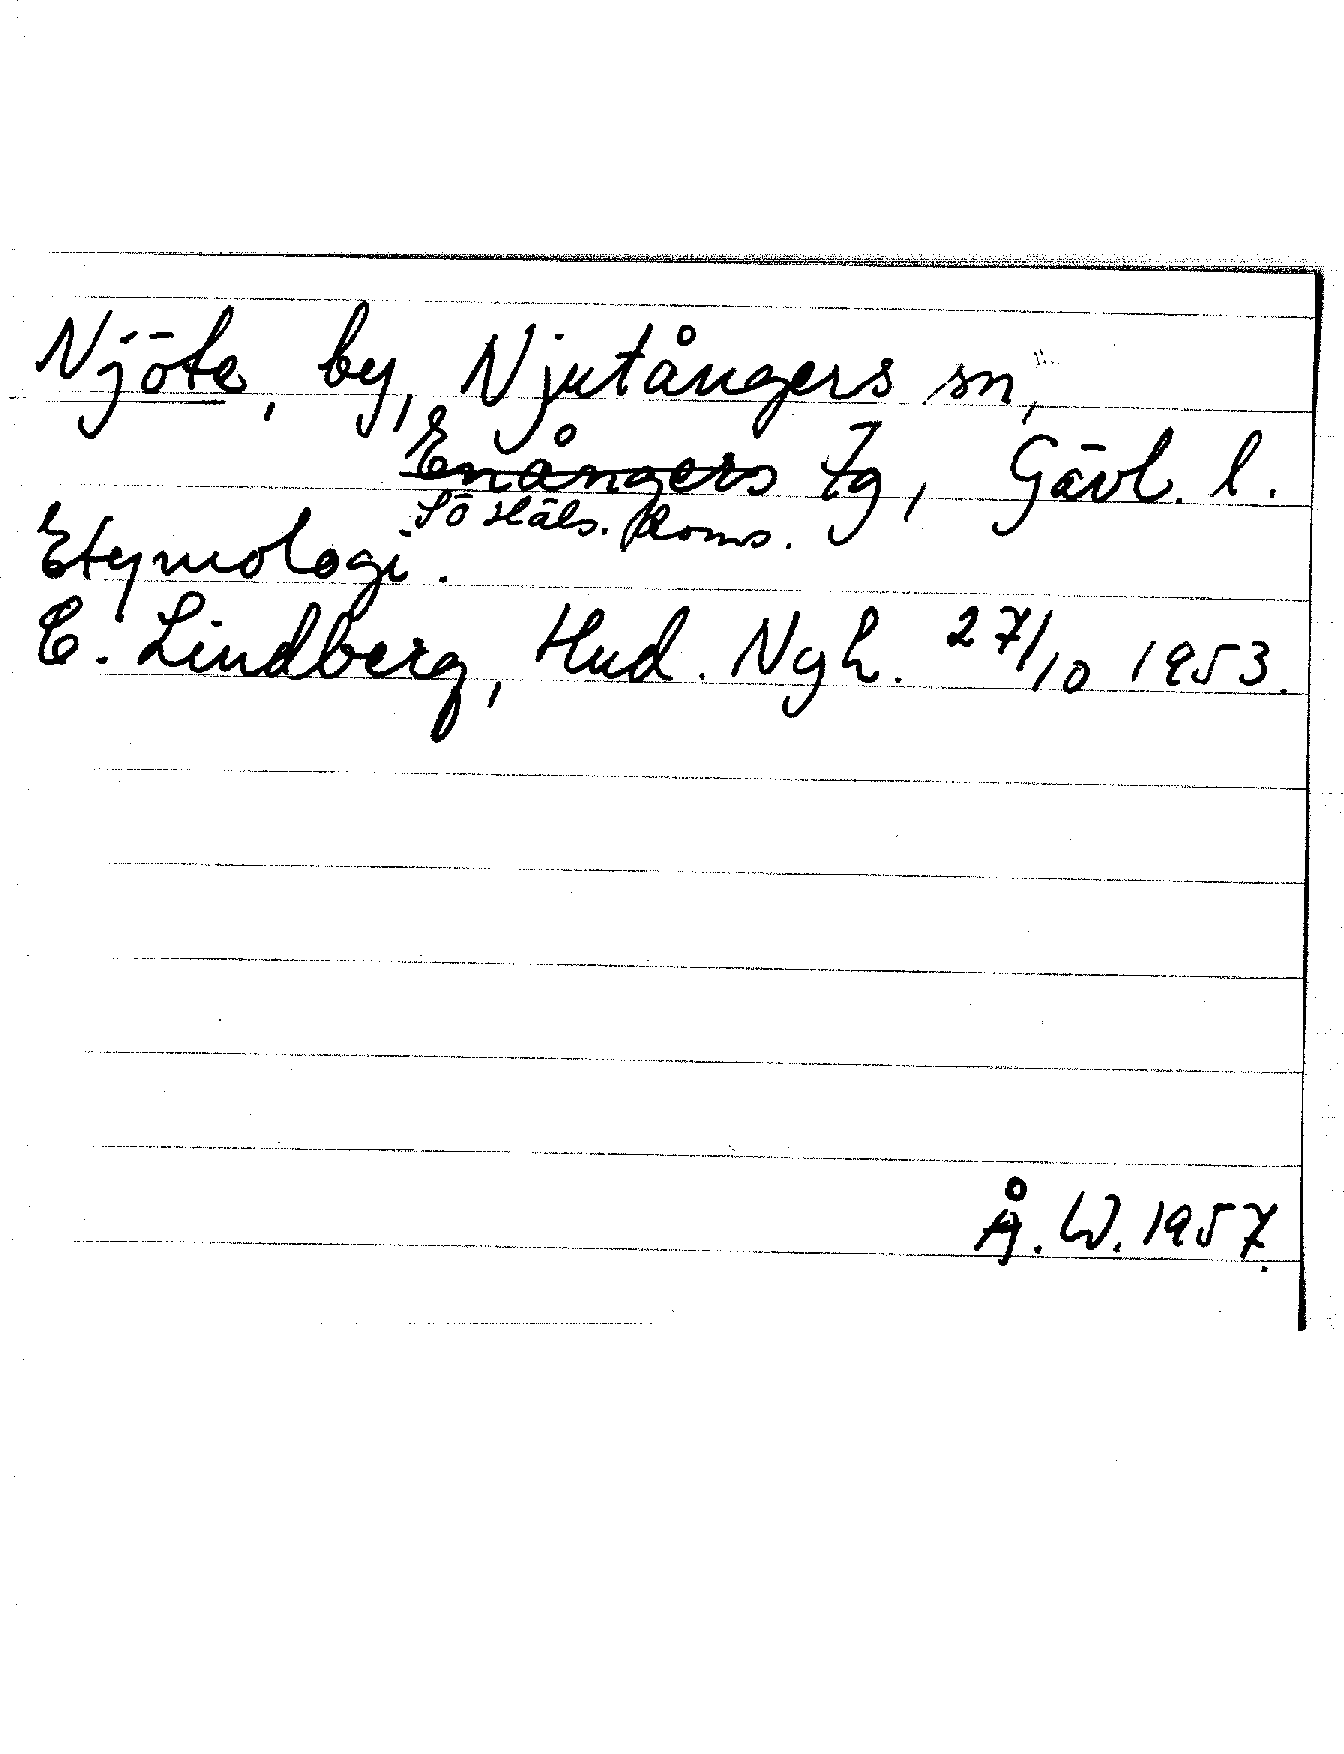 Njöte, by, Njutångers sn,
Enångers Tg, Gävl. l.
Sö Häls. Doms.
Etymologi.
C. Lindberg, Hud. Nyh. 27/10 1953.
Å. W. 1957.